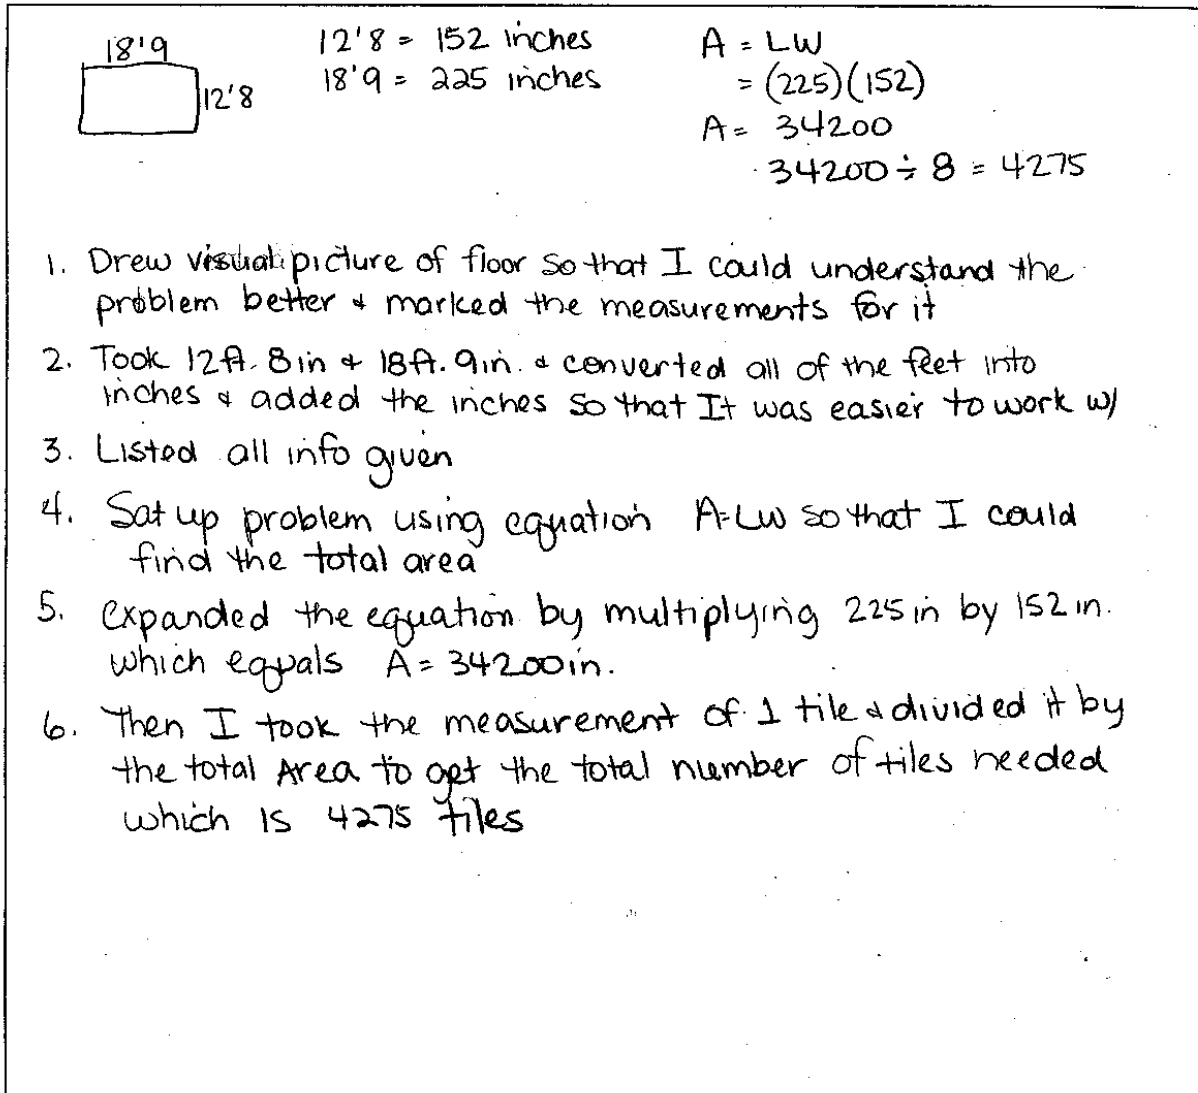 18'9
12'8
12'8 = 152 inches
18'9 = 225 inches
A = LW
= (225)(152)
A = 34200
34200 ÷ 8 = 4275
1. Drew visual picture of floor so that I could understand the
problem better & marked the measurements for it
2. Took 12ft. 8in & 18ft. 9in. & converted all of the feet into
inches & added the inches so that It was easier to work w/
3. Listed all info given
4. Sat up problem using equation A=LW so that I could
find the total area
5. expanded the equation by multiplying 225 in by 152 in.
which equals A = 34200in.
6. Then I took the measurement of 1 tile & divided it by
the total Area to get the total number of tiles needed
which is 4275 tiles